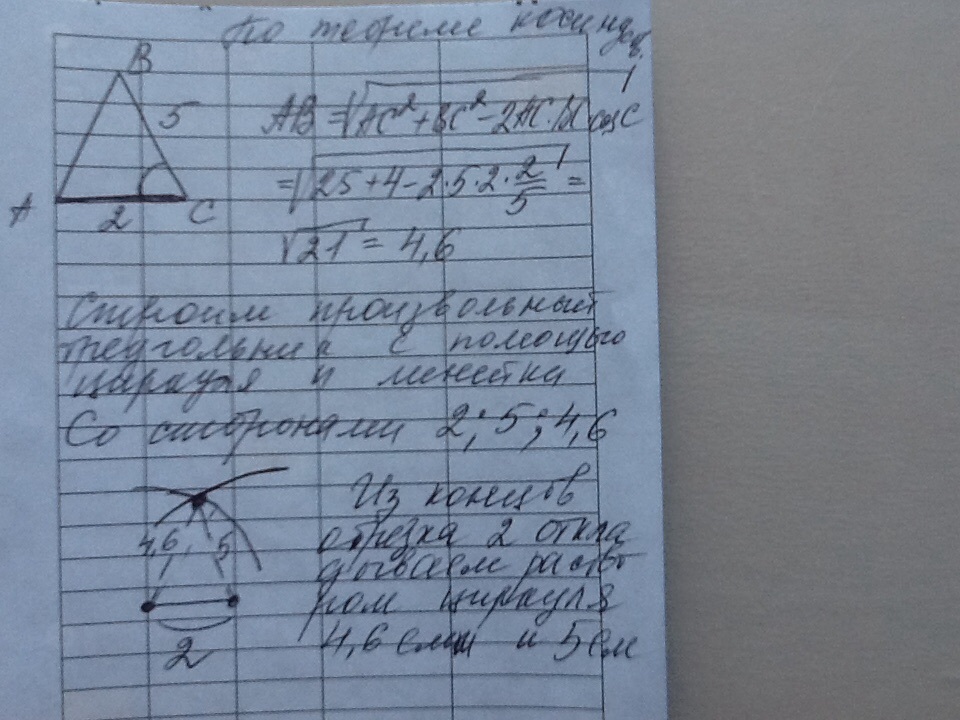 По теореме косинусов.
B
5
A
2
C
AB = √AC² + BC² - 2AC·BC cosC
= √25 + 4 - 2·5·2·2/5 =
√21 = 4,6
Строим произвольный
треугольник с помощью
циркуля и линейки
Со сторонами 2; 5; 4,6
4,6 5
2
Из концов
отрезка 2 откла
дываем раство
ром циркуля
4,6 см и 5 см